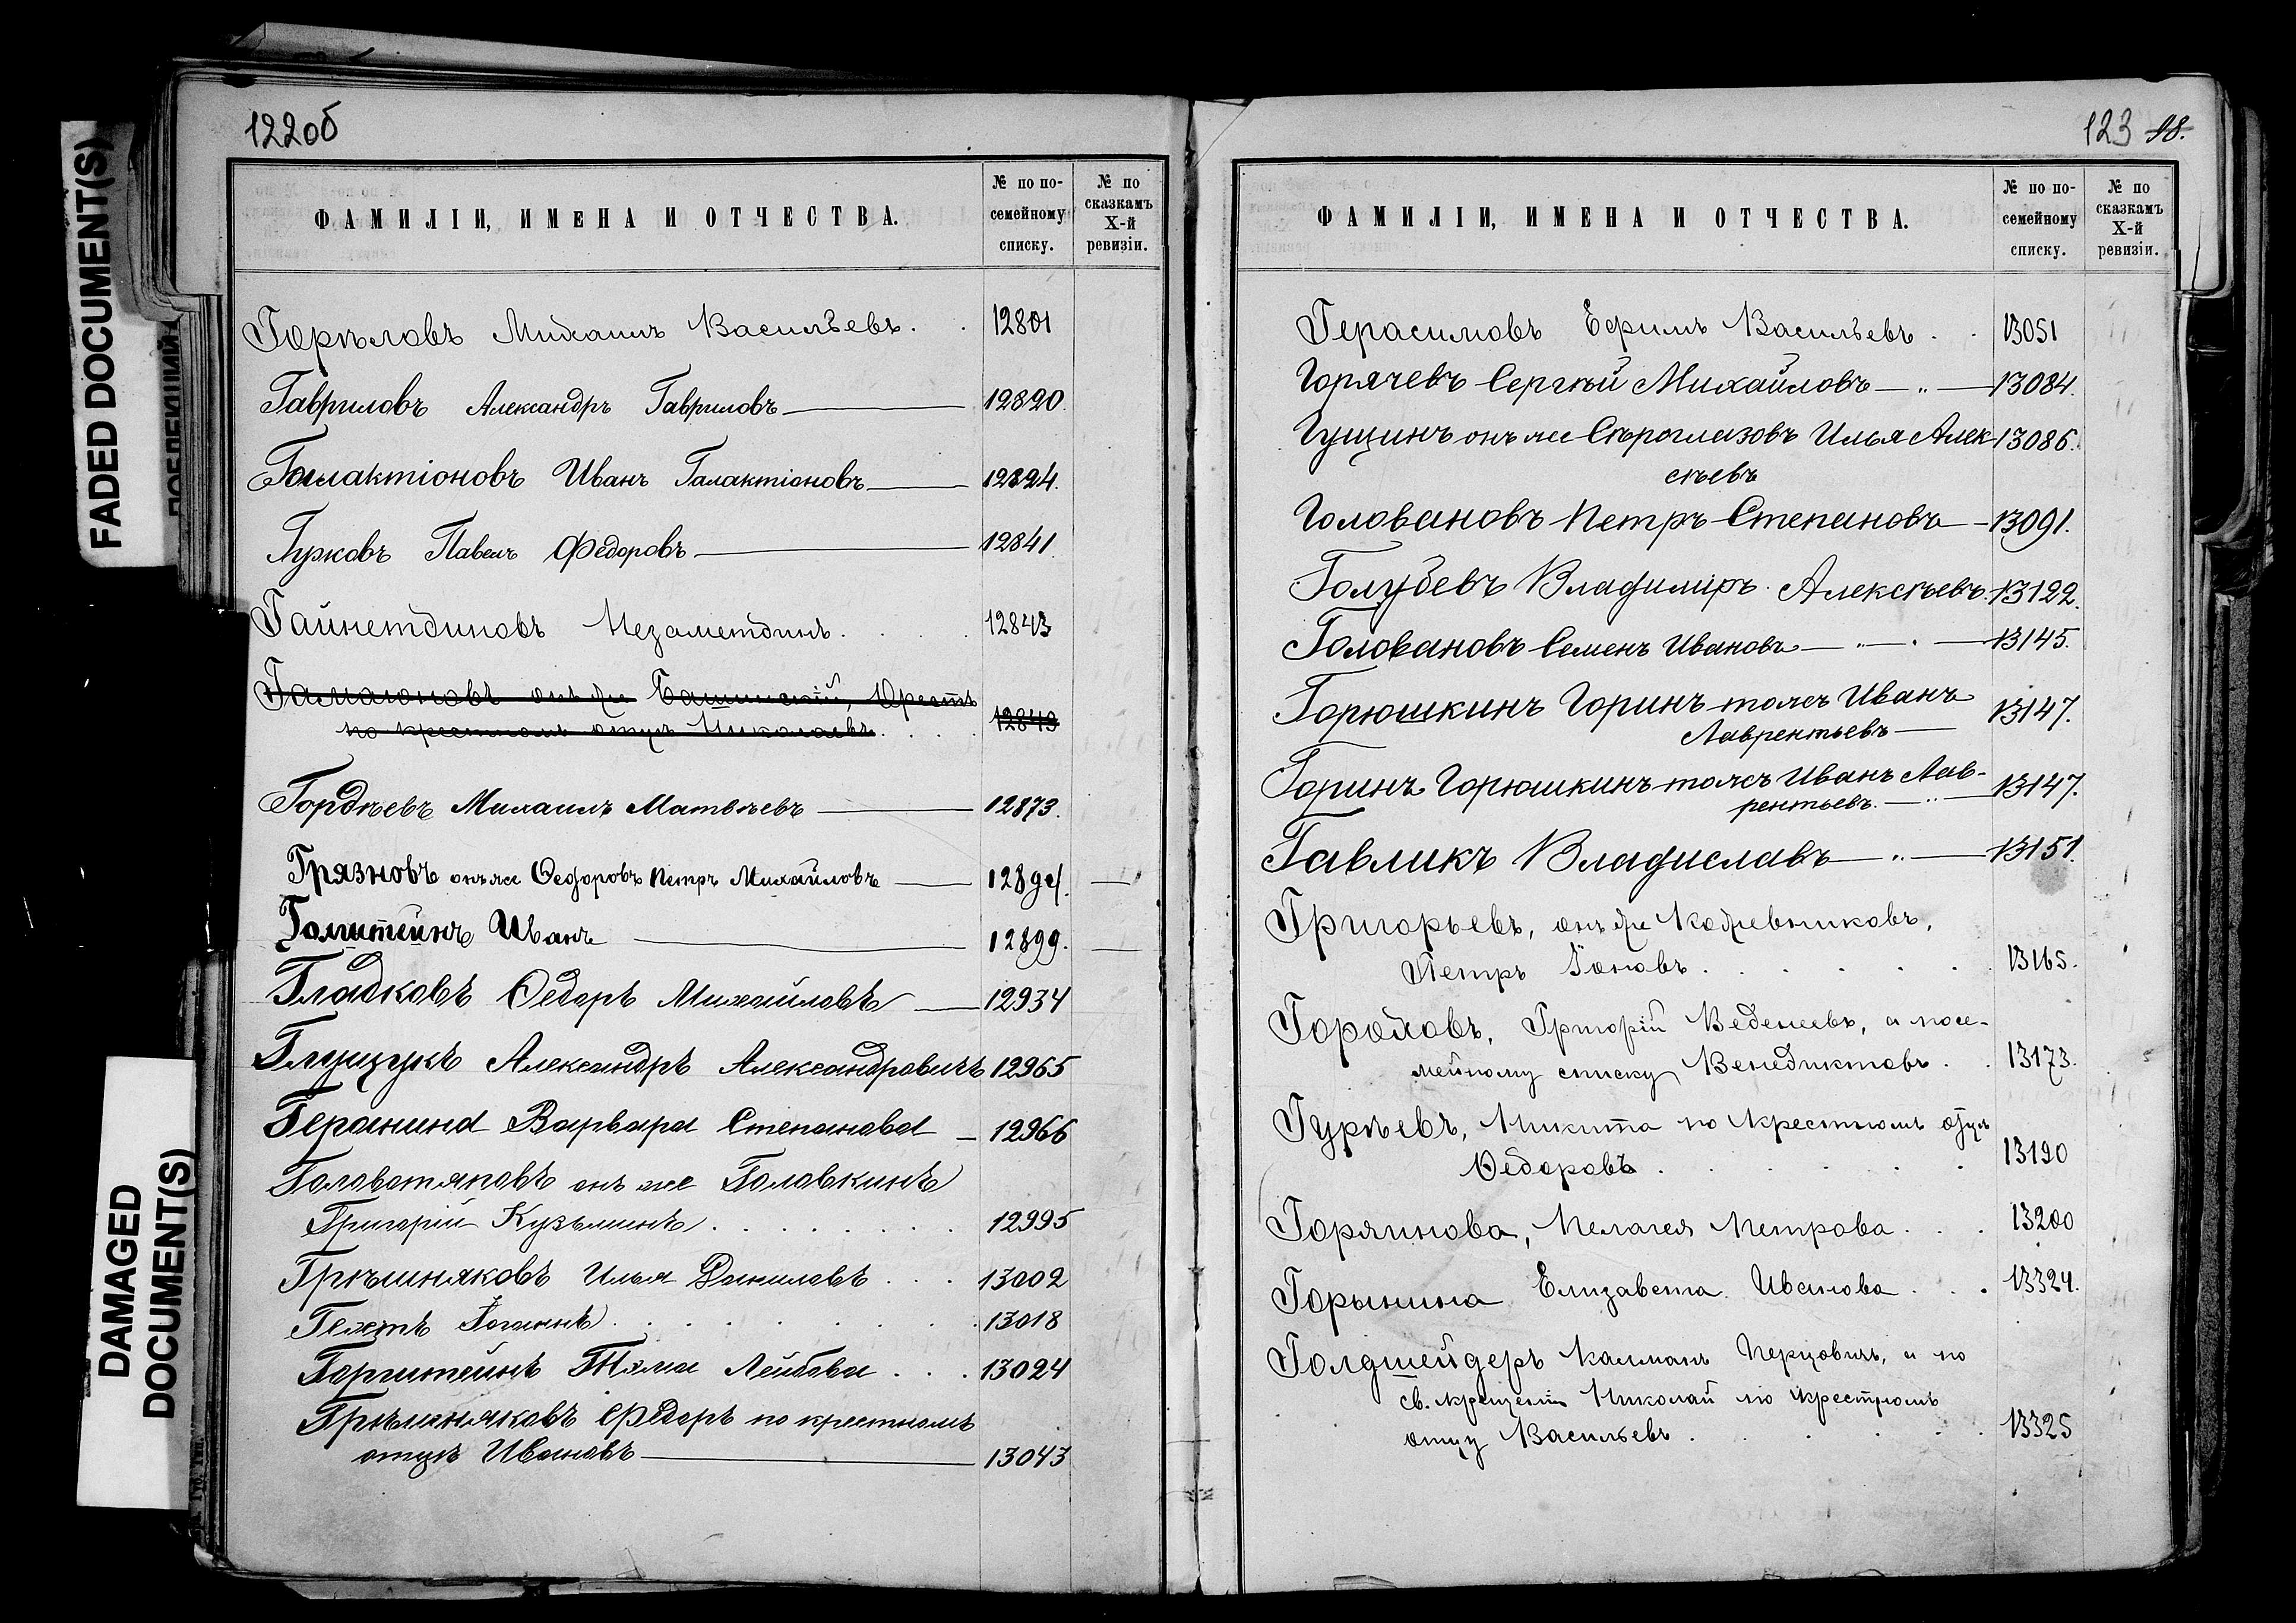 FADED DOCUMENT(S)
DAMAGED
DOCUMENT(S)
122об
ФАМИЛІИ, ИМЕНА И ОТЧЕСТВА.
№ по по-
семейному
списку.
№ по
сказкамъ
X-й
ревизіи.
Горѣловъ Михаилъ Васильевъ. . 12801
Гавриловъ Александръ Гавриловъ — 12820.
Галактіоновъ Иванъ Галактіоновъ — 12824.
Гурковъ Павелъ Федоровъ — 12841.
Гайнетдиновъ Незаметдинъ. . . . 12843
Гамаюновъ онъ же Башинскій, Орестъ
по крестномъ отцѣ Николаевъ. . . . 12849
Гордѣевъ Михаилъ Матвѣевъ — 12873.
Грязновъ онъ же Ѳедоровъ Петръ Михайловъ — 12894. —
Голштейнъ Иванъ — 12899. —
Гладковъ Ѳедоръ Михайловъ — 12934
Глущукъ Александръ Александровичъ 12965
Геранина Варвара Степанова — 12966
Головотяповъ онъ же Головкинъ
Григорій Кузьминъ. . . . . . . 12995
Грѣшняковъ Илья Даниловъ . . . 13002
Гехтъ Іоганнъ. . . . . . . . 13018
Горштейнъ Лейбова . . . 13024
Грѣшняковъ Федоръ по крестномъ
отцѣ Ивановъ — 13043
123 98.
ФАМИЛІИ, ИМЕНА И ОТЧЕСТВА.
№ по по-
семейному
списку.
№ по
сказкамъ
X-й
ревизіи.
Герасимовъ Ефимъ Васильевъ . . 13051
Горячевъ Сергѣй Михайловъ — „ — 13084.
Гущинъ онъ же Сѣроглазовъ Илья Алек- 13086.
сѣевъ
Головановъ Петръ Степановъ — 13091.
Голубевъ Владиміръ Алексѣевъ. 13122.
Головановъ Семенъ Ивановъ — „ — . — 13145.
Горюшкинъ Горинъ тожъ Иванъ 13147.
Лаврентьевъ —
Горинъ Горюшкинъ тожъ Иванъ Лав- 13147.
рентьевъ. — „ —
Гавликъ Владиславъ — „ — 13151.
Григорьевъ, онъ же Кожевниковъ,
Петръ Іоновъ. . . . . . . 13165.
Гороховъ, Григорій Веденеевъ, а посе-
мейному списку Венедиктовъ . . 13173.
Гурѣевъ, Никита по крестномъ отцѣ
Ѳедоровъ . . . . . . 13190
Горяинова, Пелагея Петрова . . . 13200
Горынина Елизавета Иванова . . . 13324.
Голдшейдеръ Калманъ Перцовичъ, а по
св. крещеніи Николай по крестномъ
отцу Васильевъ . . . . . . 13325